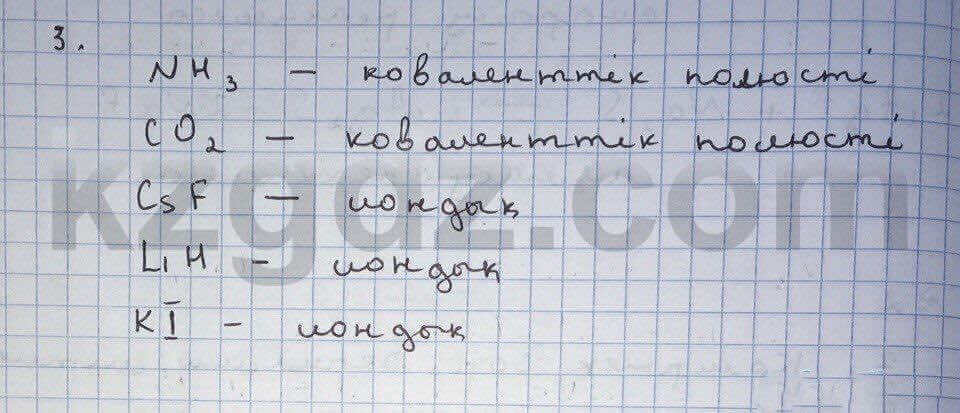 3.
NH₃ — коваленттік полюсті
CO₂ — коваленттік полюсті
CsF — иондық
LiH - иондық
KI - иондық
kzgdz.com